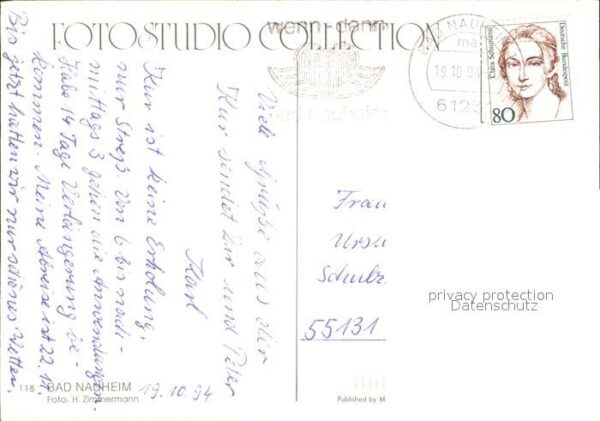 FOTOSTUDIO COLLECTION
wenn - dann
Bad Nauheim
BAD NAUHEIM
19.10.94
6123
Deutsche Bundespost
Clara Schumann
80
Viele Grüße aus der
Kur sendet Dir und Peter
Karl
Kur ist keine Erholung,
nur Streß. Von 6 bis nach-
mittags 3 gehen die Anwendungen.
Hab 14 Tage Verlängerung be-
kommen. Meine Abreise ist 22.11.
Bis jetzt hatten wir nur schönes Wetter.
19.10.94
Frau
Ursu
Schulz
55131
privacy protection
Datenschutz
118 BAD NAUHEIM
Foto: H. Zimmermann
Published by M